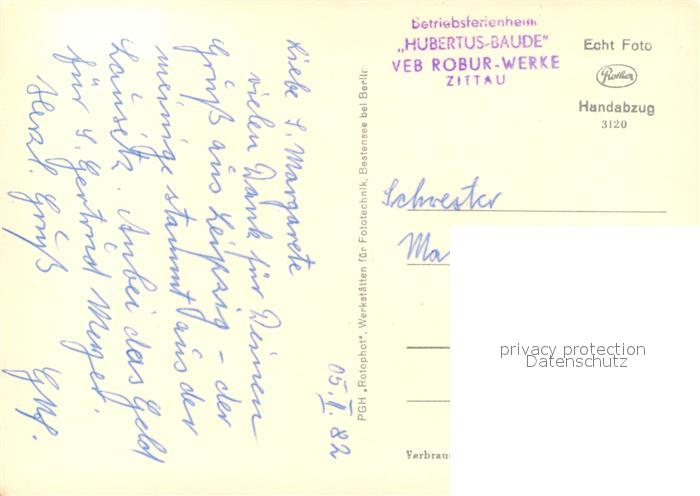 Betriebsferienheim
„HUBERTUS-BAUDE"
VEB ROBUR-WERKE
ZITTAU
Echt Foto
Rother
Handabzug
3120
Liebe S. Margarete
vielen Dank für Deinen
Gruß aus Leipzig – der
meinige stammt aus der
Lausitz. Anbei das Geld
für S. Gertrud
Herzl. Gruß
05. II. 82
PGH „Rotophot", Werkstätten für Fototechnik, Bestensee bei Berlin
Schwester
Ma
privacy protection
Datenschutz
Verbrau